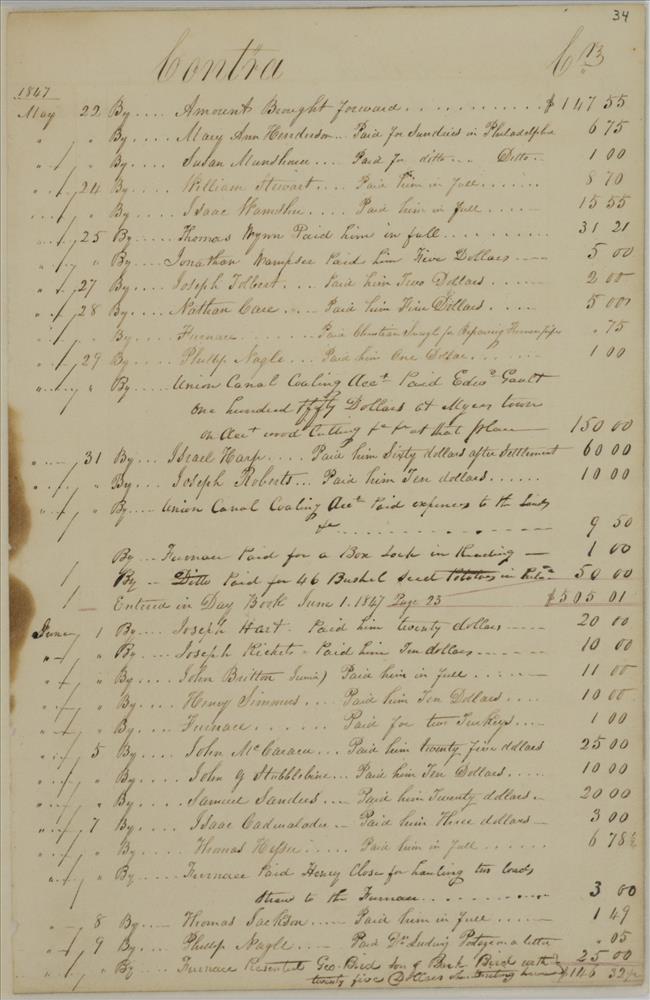 34
Contra Crs
1847
May 22 By .... Amount Brought forward ............ $ 147 55
" " By .... Mary Ann Henderson .. Paid for Sundries in Philadelphia 6 75
" " By .... Susan Munshower .... Paid for ditto ... Ditto .. 1 00
" 24 By .... William Stewart .... Paid him in full ....... 8 70
" " By .... Isaac .... Paid him in full ....... 15 55
" 25 By .... Thomas Wynn Paid him in full ......... 31 21
" " By .... Jonathan Wampser Paid him Five Dollars .... 5 00
" 27 By .... Joseph Tolbert ... Paid him Two Dollars ..... 2 00
" 28 By .... Nathan Care .... Paid him Five Dollars ..... 5 00
" " By .... Furnace ....... Paid Christian for Repairing " 75
" 29 By .... Phillip Nagle ... Paid him One Dollar ...... 1 00
" " By .... Union Canal Coaling Acct Paid Edwd Gault
One hundred & fifty Dollars at Myers town
on Acct wood Cutting &c &c at that place — 150 00
" 31 By ... Israel Harp .... Paid him Sixty dollars after Settlement 60 00
" " By .... Joseph Roberts ... Paid him Ten dollars ...... 10 00
" " By .... Union Canal Coaling Acct Paid expences to the Lands
&c ............ 9 50
By ... Furnace Paid for a Box Lock in Reading — 1 00
By .. Ditto Paid for 46 Bushel Seed Potatoes in 50 00
Entered in Day Book June 1. 1847 Page 23 $505 01
June 1 By .... Joseph Hart. Paid him twenty dollars .... 20 00
" " By .... Joseph Rickets .. Paid him Ten dollars ...... 10 00
" " By .... John Britton Junir) Paid him in full ...... 11 00
" " By .... Henry Simmons ... Paid him Ten Dollars .... 10 00
" " By .... Furnace ...... Paid for two Turkeys .... 1 00
" 5 By .... John McCaraca ... Paid him twenty five dollars 25 00
" " By .... John G Stubblebine ... Paid him Ten Dollars ..... 10 00
" " By .... Samuel Sanders ... Paid him Twenty dollars .. 20 00
" 7 By .... Isaac Cadwalader .. Paid him Three dollars — 3 00
" " By .... Thomas ..... Paid him in full ...... 6 78½
" " By .... Furnace Paid Henry Close for hauling two loads
straw to the Furnace ........... 3 00
" 8 By .... Thomas Jackson .... Paid him in full ...... 1 49
" 9 By .... Phillip Nagle .... Paid Postage on a letter " 05
" " By .. Furnace Presented Geo. Bird Son of Bird with 25 00
twenty five Dollars $146 32½